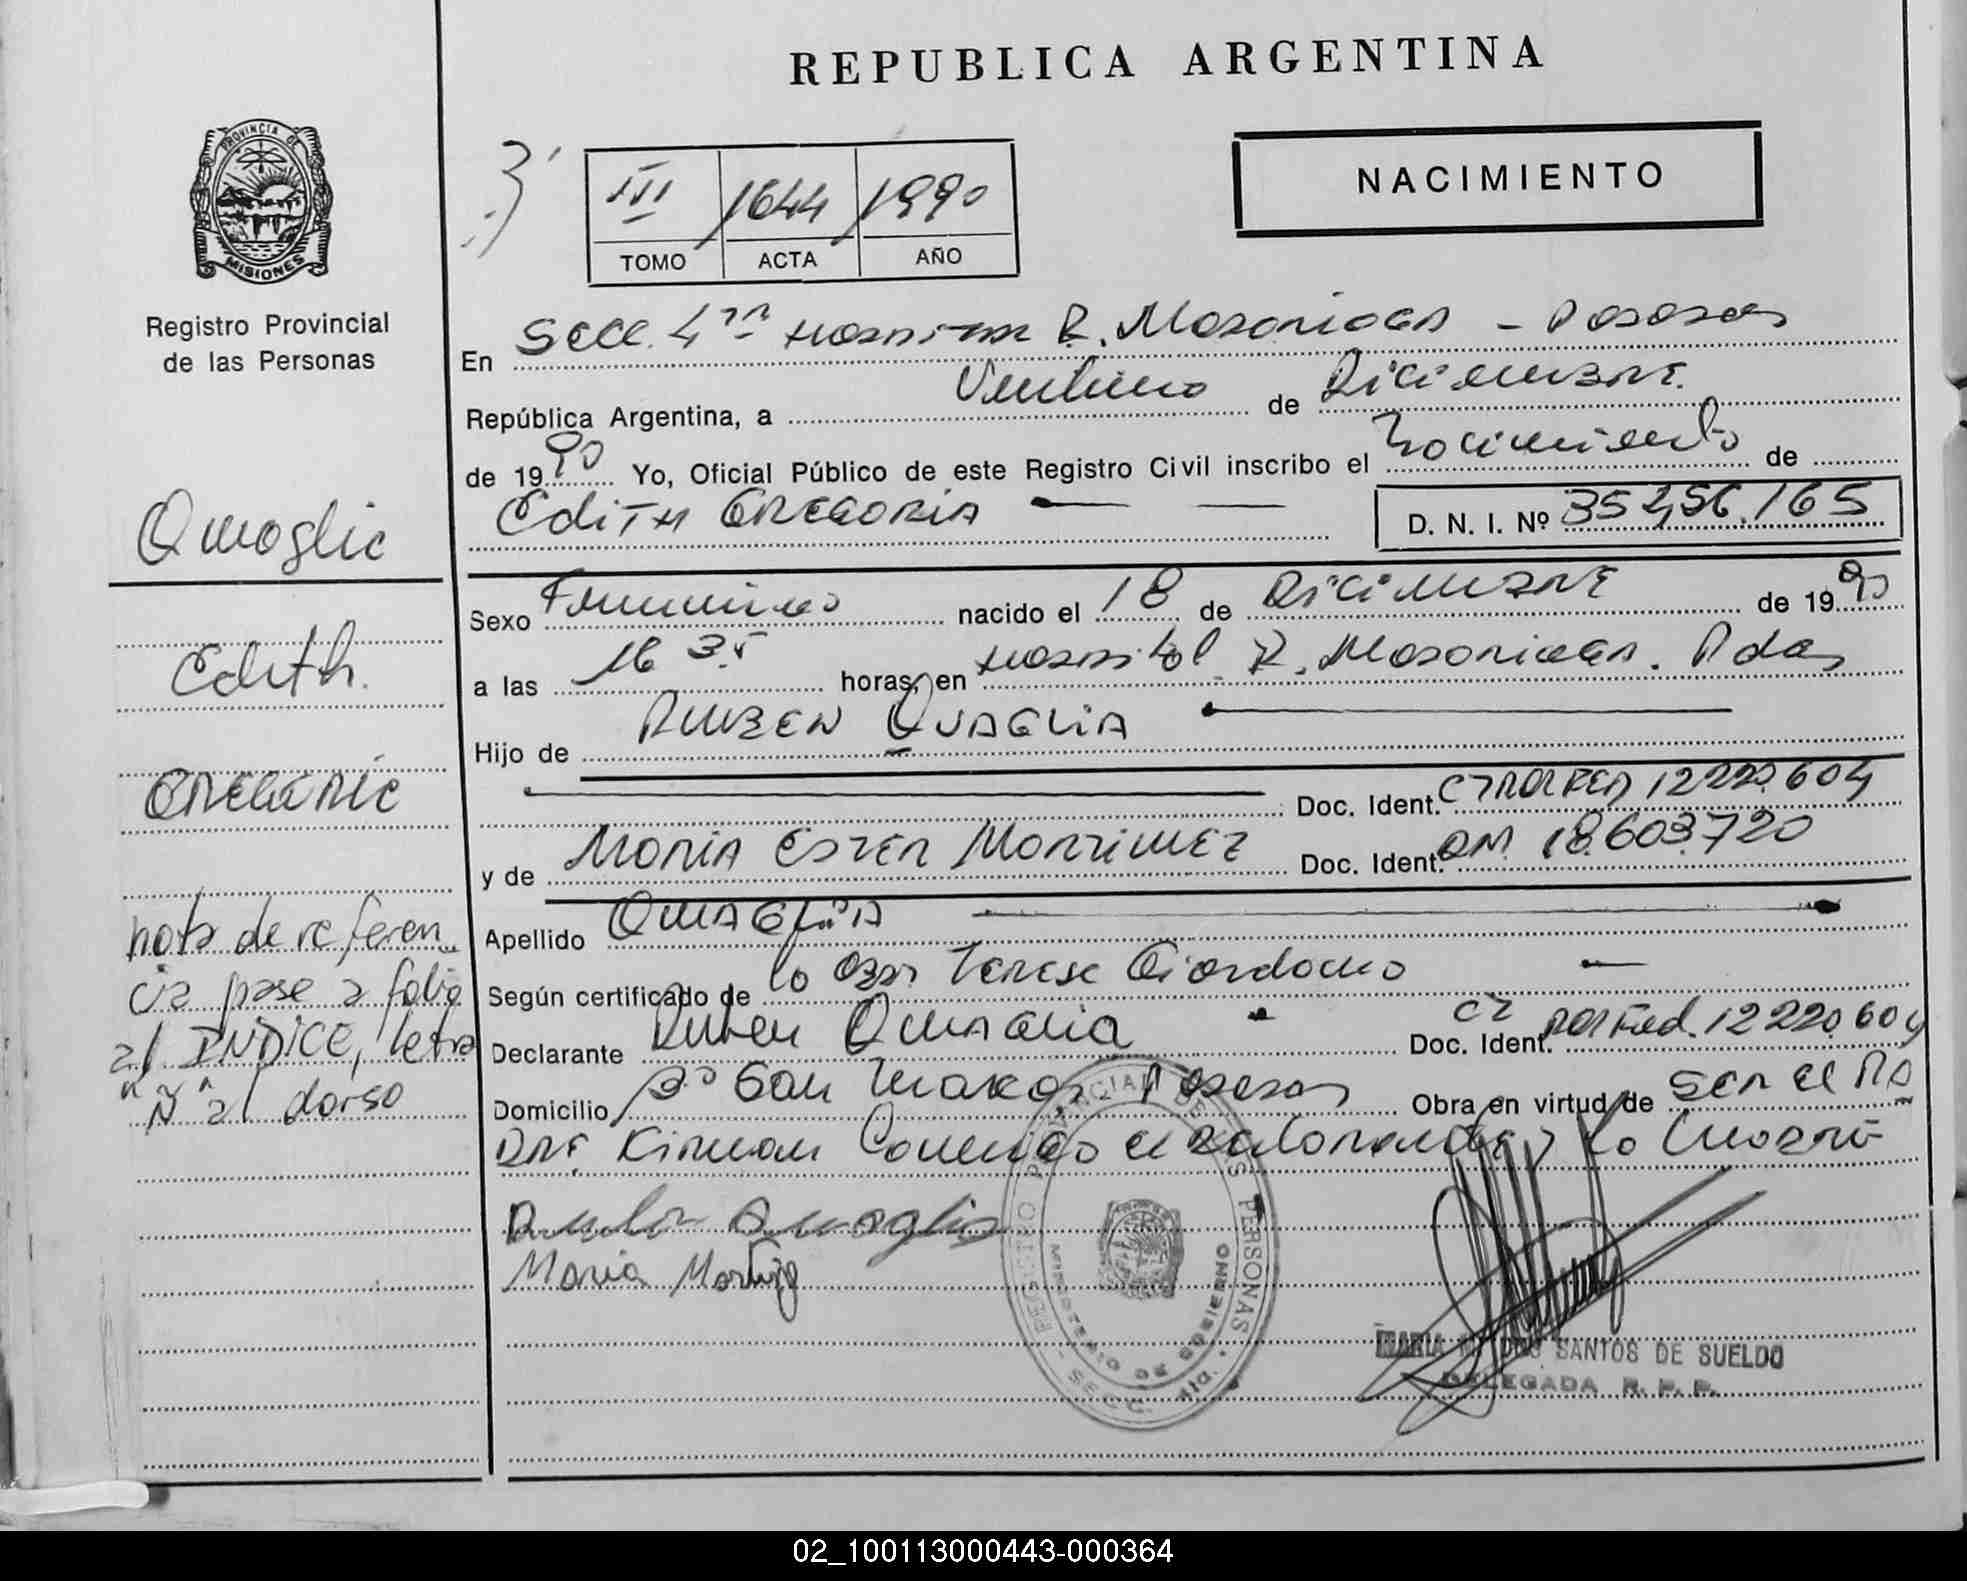 REPUBLICA ARGENTINA
PROVINCIA DE
MISIONES
Registro Provincial
de las Personas
III 1644 1990
TOMO ACTA AÑO
NACIMIENTO
En Secc. 4ta R. Madariaga - Posadas
República Argentina, a Veintiuno de Diciembre
de 1990 Yo, Oficial Público de este Registro Civil inscribo el nacimiento de
Edith Gregoria D. N. I. Nº 35.256.165
Quaglia
Edith
Gregoria
Sexo Femenino nacido el 18 de Diciembre de 1990
a las 16 35 horas, en Hospital R. Madariaga. Pdas
Hijo de Ruben Quaglia
Doc. Ident. CI Pol Fed 12.220.604
y de Maria Ester Martinez Doc. Ident. DNI. 18.603.720
Apellido Quaglia
Según certificado de la Obst Teresa Giordano
Declarante Ruben Quaglia Doc. Ident. CI Pol Fed. 12.220.604
Domicilio Bº San Marcos Posadas Obra en virtud de ser el Pa
dre. Firman Conmigo el declarante y la Madre
nota de referen
cia pase a folio
al INDICE, letra
"Ñ" al dorso
Ruben Quaglia
Maria Martinez
REGISTRO PROVINCIAL DE LAS PERSONAS
MINISTERIO DE GOBIERNO
SECC.
MARIA M. DOS SANTOS DE SUELDO
DELEGADA R. P. P.
02_100113000443-000364